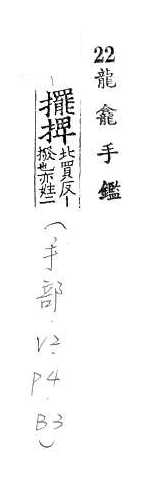 22 龍龕手鑑
擺捭北買反丨撥也亦姓二
(手部.V2.P4.B3)